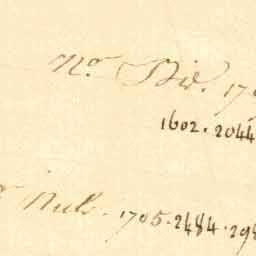 No. Div. 17
1602. 2044
Nul. 1705. 2484. 298